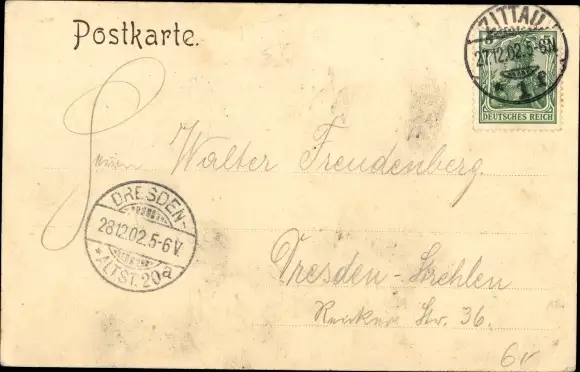 Postkarte.
ZITTAU
27.12.02.5-6N.
* 1 f
DEUTSCHES REICH
Herrn Walter Freudenberg.
DRESDEN-
28.12.02.5-6V.
*ALTST.20a
Dresden-Strehlen
Reicker Str. 36.